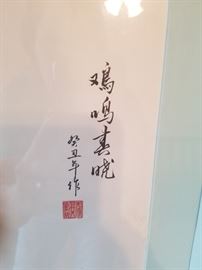 鸡鸣春晓
癸丑年作